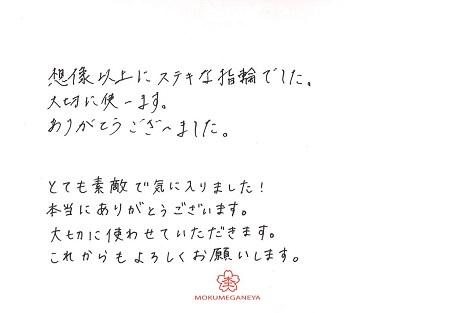 想像以上にステキな指輪でした。
大切に使います。
ありがとうございました。
とても素敵で気に入りました！
本当にありがとうございます。
大切に使わせていただきます。
これからもよろしくお願いします。
MOKUMEGANEYA